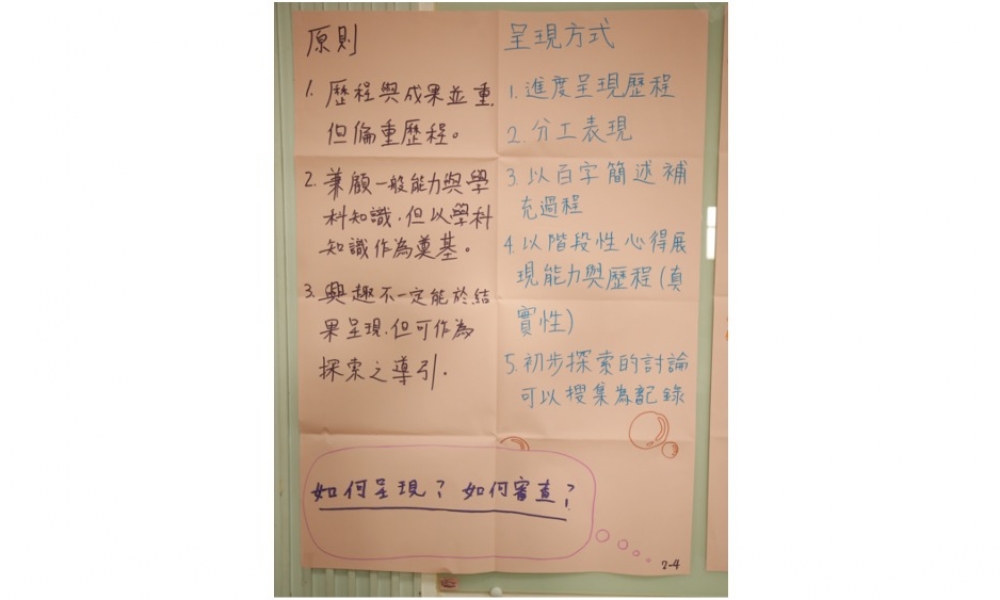 原則
1. 歷程與成果並重,
但偏重歷程。
2. 兼顧一般能力與學
科知識,但以學科
知識作為奠基。
3. 興趣不一定能於結
果呈現,但可作為
探索之導引.
呈現方式
1. 進度呈現歷程
2. 分工表現
3. 以百字簡述補
充過程
4. 以階段性心得展
現能力與歷程(真
實性)
5. 初步探索的討論
可以搜集為記錄
如何呈現? 如何審查?
2-4